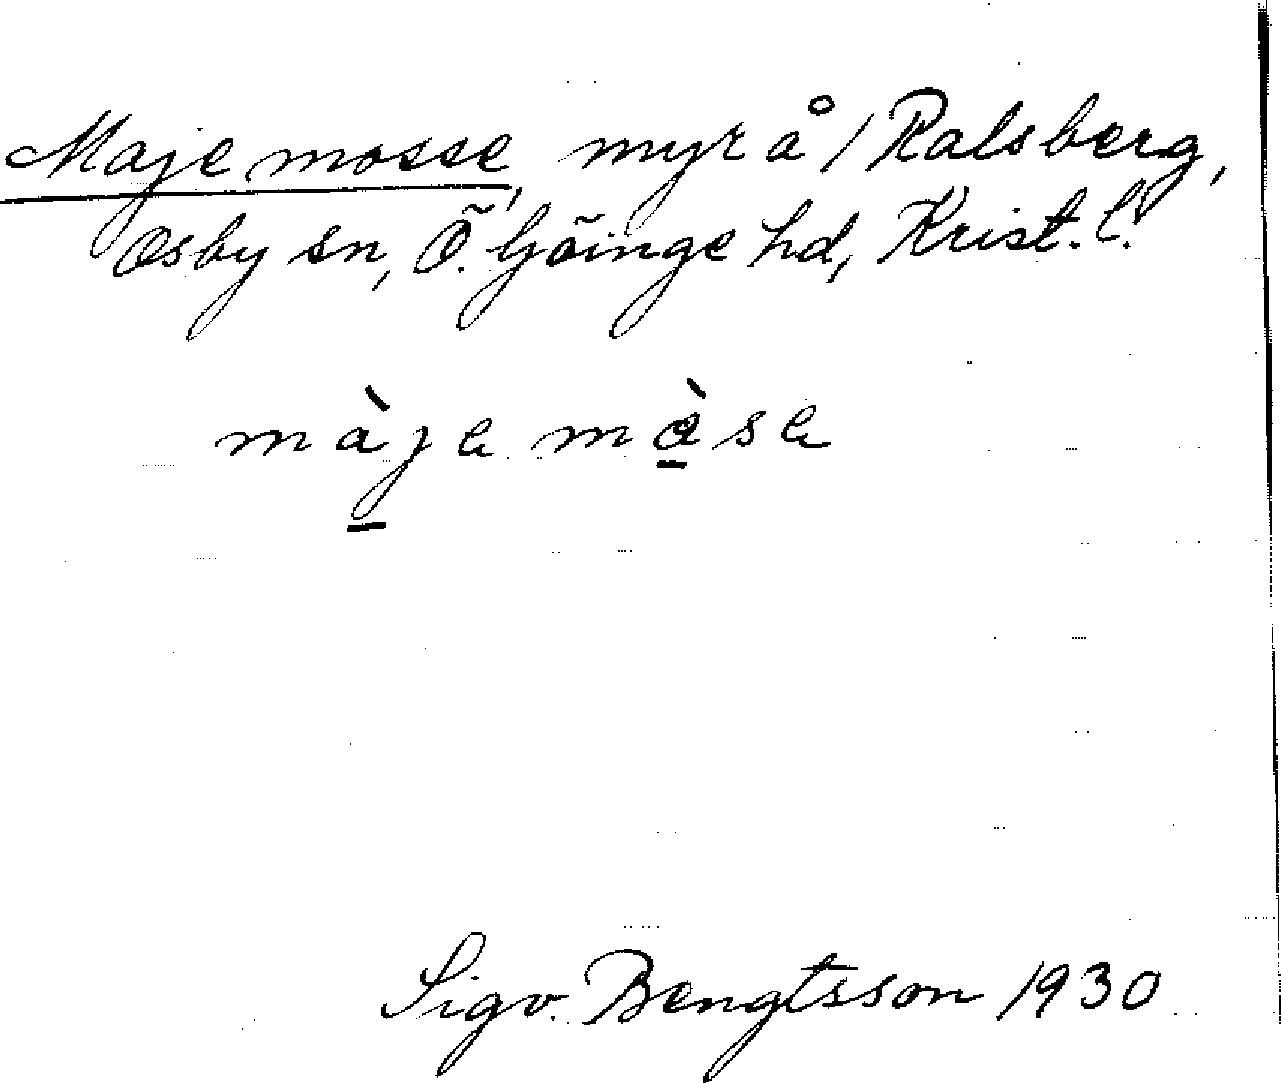 Majemosse, myr å /Ralsberg,
Osby sn, Ö. Göinge hd, Krist. l.
màje mòse
Sigv. Bengtsson 1930